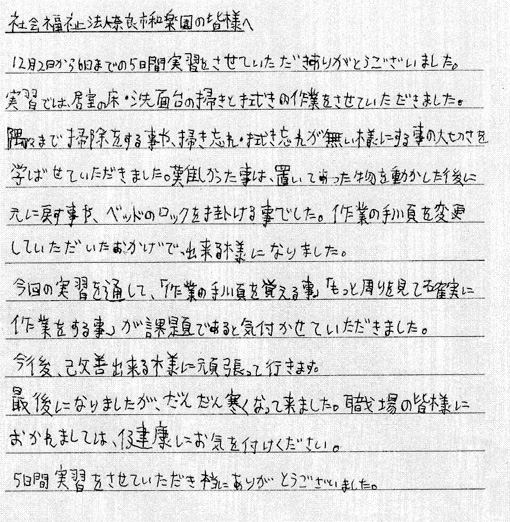 社会福祉法人奈良市和楽園の皆様へ
12月2日から6日までの5日間実習をさせていただきありがとうございました。
実習では、居室の床・洗面台の掃きと拭きの作業をさせていただきました。
隅々まで掃除をする事や、掃き忘れ・拭き忘れが無い様にする事の大切さを
学ばせていただきました。難しかった事は、置いてあった物を動かした後に
元に戻す事や、ベッドのロックを掛ける事でした。作業の手順を変更
していただいたおかげで、出来る様になりました。
今回の実習を通して、「作業の手順を覚える事」「もっと周りを見て確実に
作業をする事」が課題であると気付かせていただきました。
今後、改善出来る様に頑張って行きます。
最後になりましたが、だんだん寒くなって来ました。職場の皆様に
おかれましては、健康にお気を付けください。
5日間実習をさせていただき本当にありがとうございました。